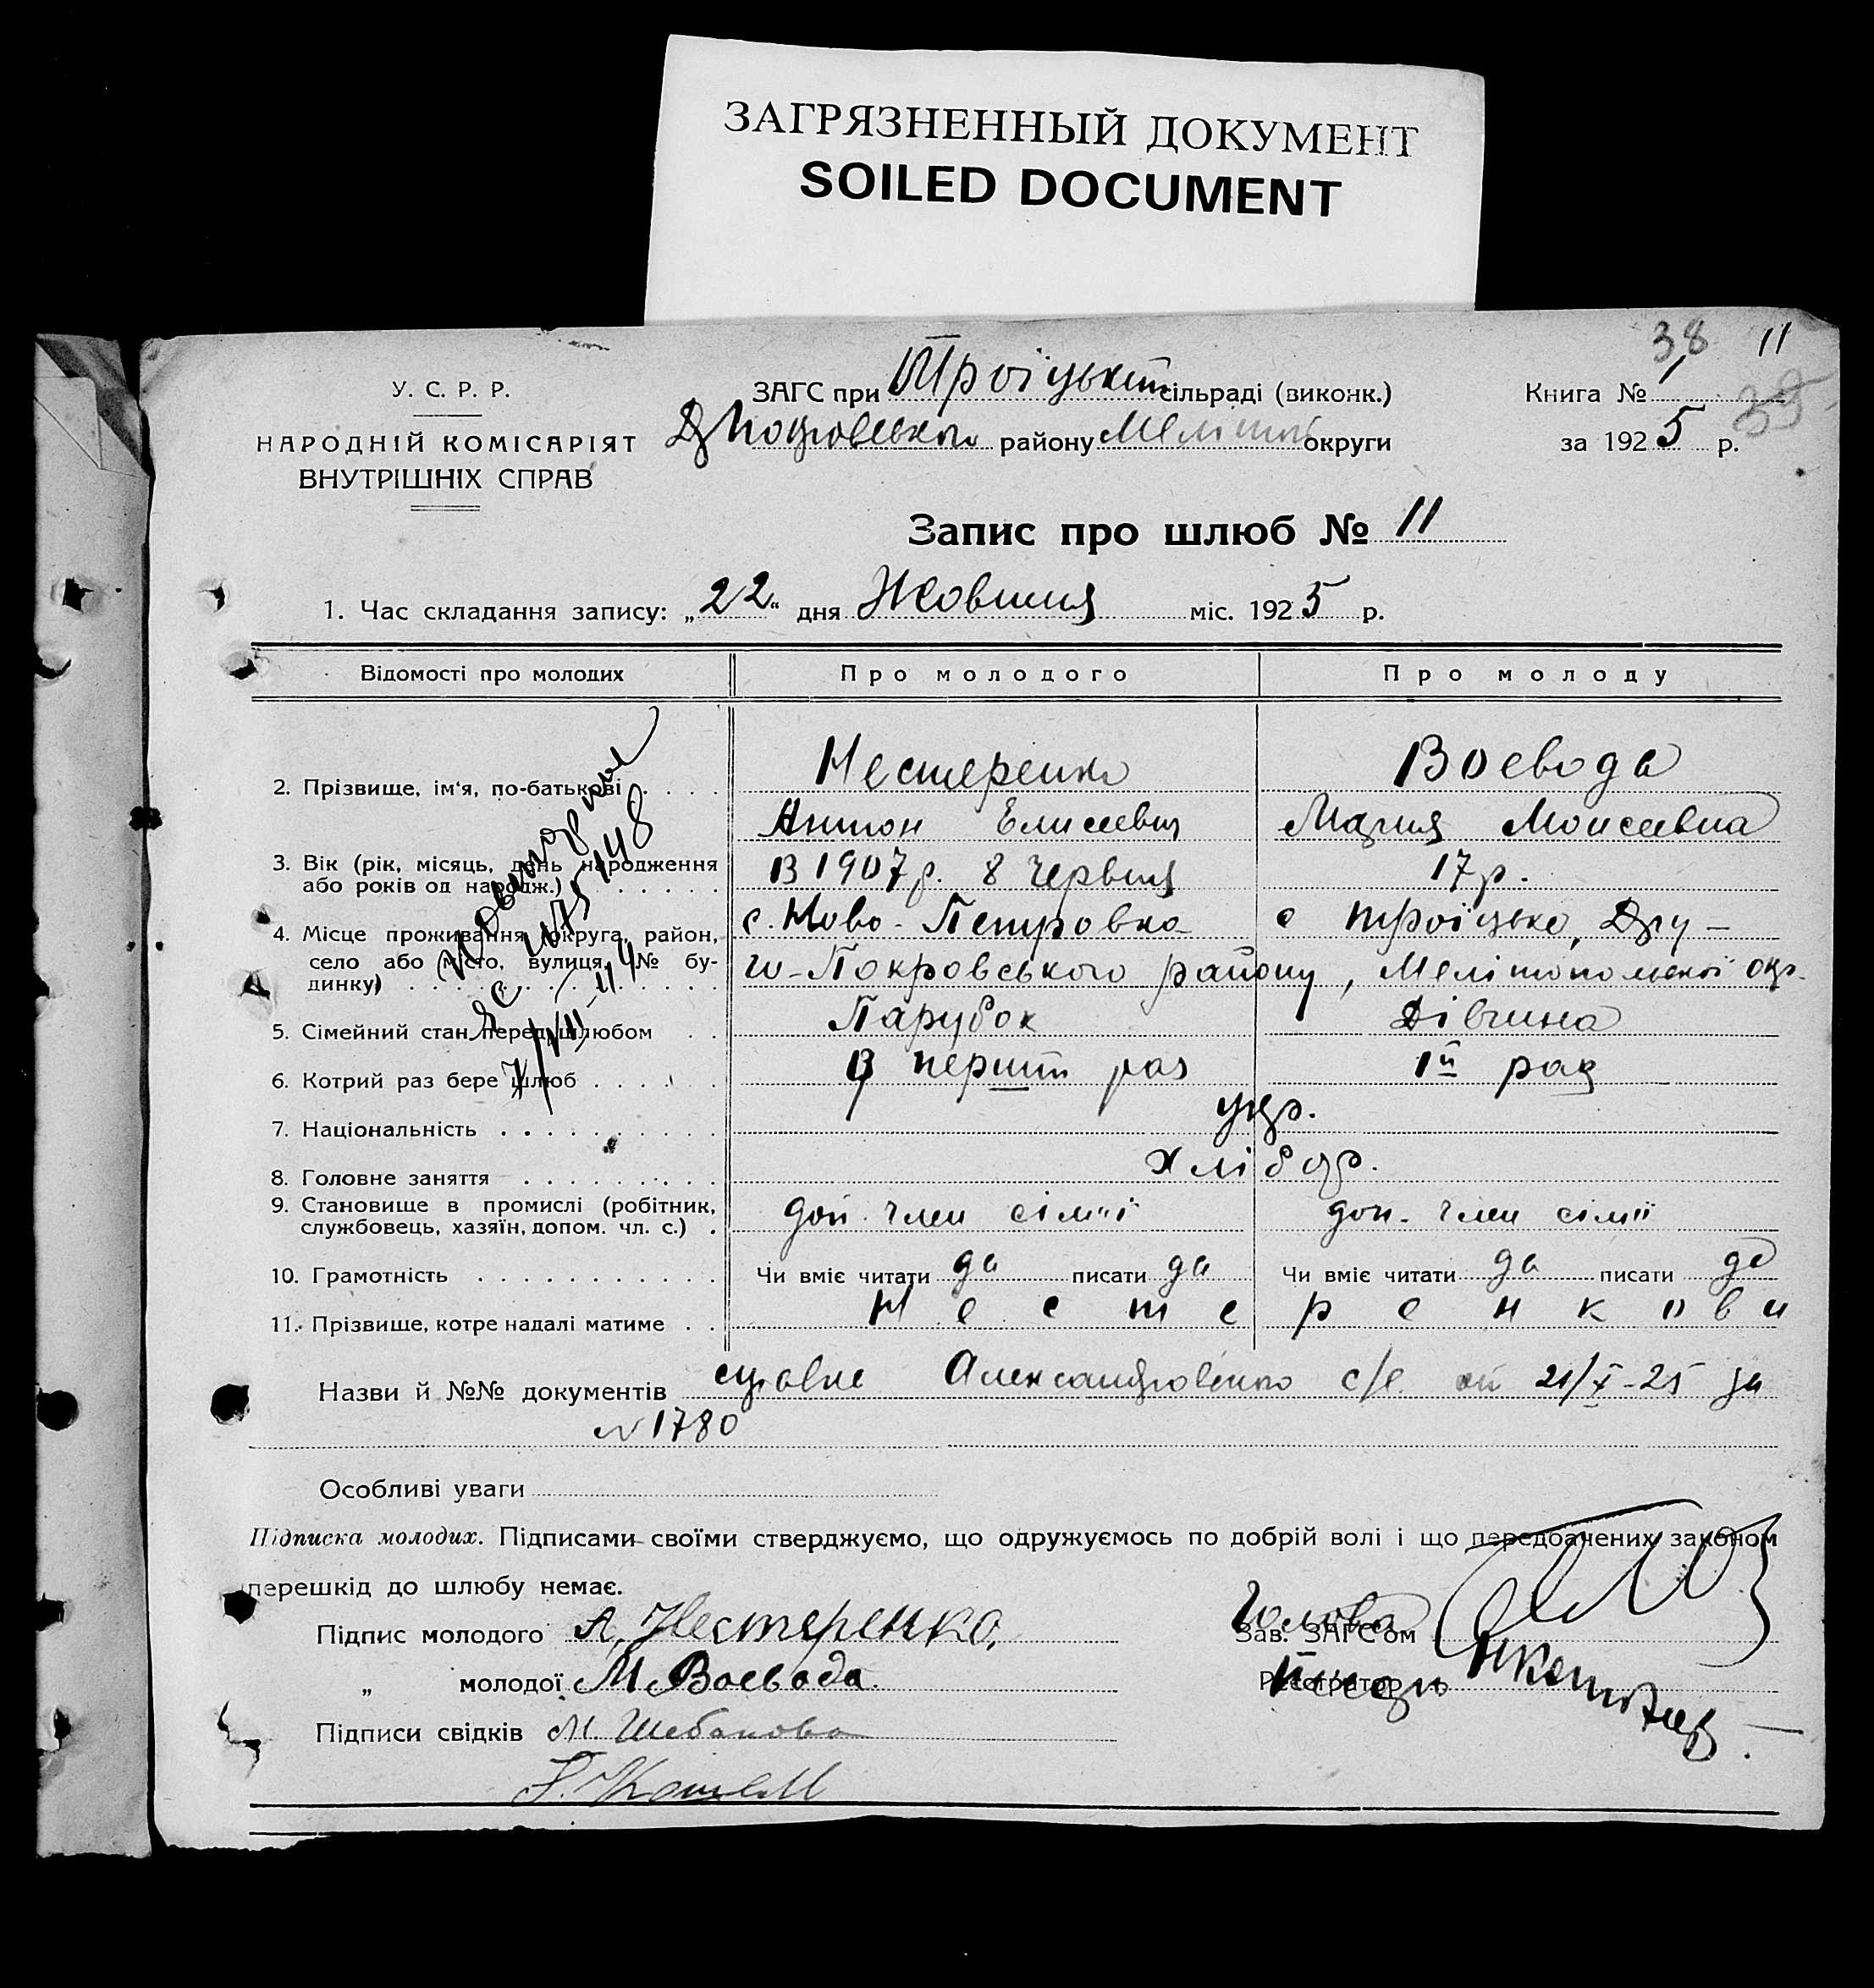 ЗАГРЯЗНЕННЫЙ ДОКУМЕНТ
SOILED DOCUMENT
38 11
У. С. Р. Р.
ЗАГС при Троїцькій сільраді (виконк.)
Книга № 1
39
НАРОДНІЙ КОМІСАРІЯТ
ВНУТРІШНІХ СПРАВ
району Меліт округи
за 1925 р.
Запис про шлюб № 11
1. Час складання запису: „22" дня Жовтня міс. 1925 р.
Відомості про молодих
Про молодого
Про молоду
2. Прізвище, ім'я, по-батькові
Нестеренко
Воевода
Антон Елисеевич
Мария Моисеевна
3. Вік (рік, місяць, день народження
або років од народж.)
В 1907 р. 8 Червня
17 р.
4. Місце проживання (округа, район,
село або місто, вулиця, № бу-
динку)
с. Ново-Петровка
с Троїцьке,
Покровського району, Мелітопольскої окр.
5. Сімейний стан перед шлюбом
Парубок
Дівчина
6. Котрий раз бере шлюб
В перший раз
1й раз
7. Національність
укр.
8. Головне заняття
хлібор.
9. Становище в промислі (робітник,
службовець, хазяїн, допом. чл. с.)
доп. член сім'ї
доп. член сімїї
10. Грамотність
Чи вміє читати да писати да
Чи вміє читати да писати да
11. Прізвище, котре надалі матиме
Нестеренкови
Повторное
7/VIII-
Назви й №№ документів Александровского с/с 21/X-25 за
№ 1780
Особливі уваги
Підписка молодих. Підписами своїми стверджуємо, що одружуємось по добрій волі і що передбачених законом
перешкід до шлюбу немає.
Підпис молодого А. Нестеренко.
Голова
Зав. ЗАГС'ом
„ молодої М. Воевода.
Реєстратор
Підписи свідків М. Шебанова